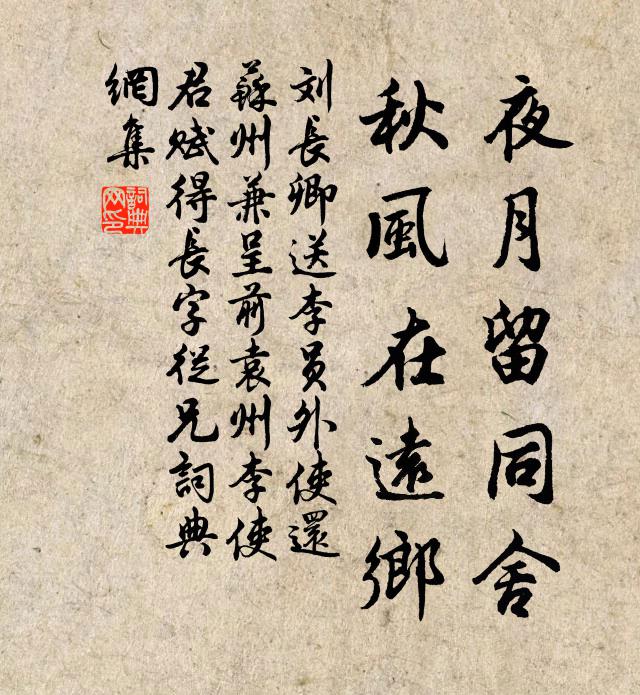 夜月留同舍
秋風在遠鄉
刘長卿送李員外使還
蘇州兼呈前袁州李使
君賦得長字從兄詞典
網集
詞典網印